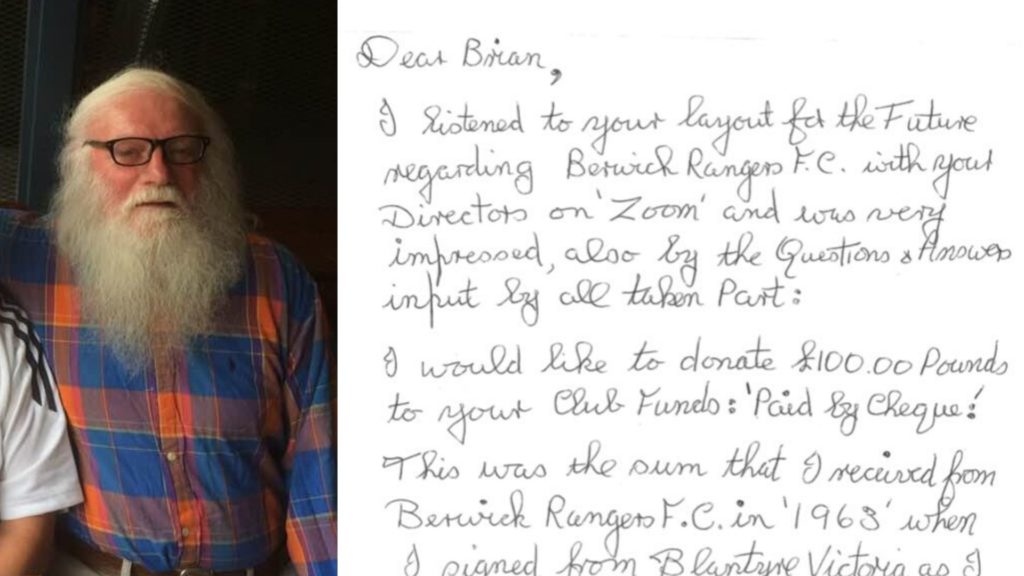 Dear Brian,
I listened to your layout for the Future
regarding Berwick Rangers F.C. with your
Directors on 'Zoom' and was very
impressed, also by the Questions & Answers
input by all taken Part:
I would like to donate £100.00 Pounds
to your Club Funds: 'Paid by Cheque:'
This was the sum that I received from
Berwick Rangers F.C. in '1963' when
I signed from Blantyre Victoria as I